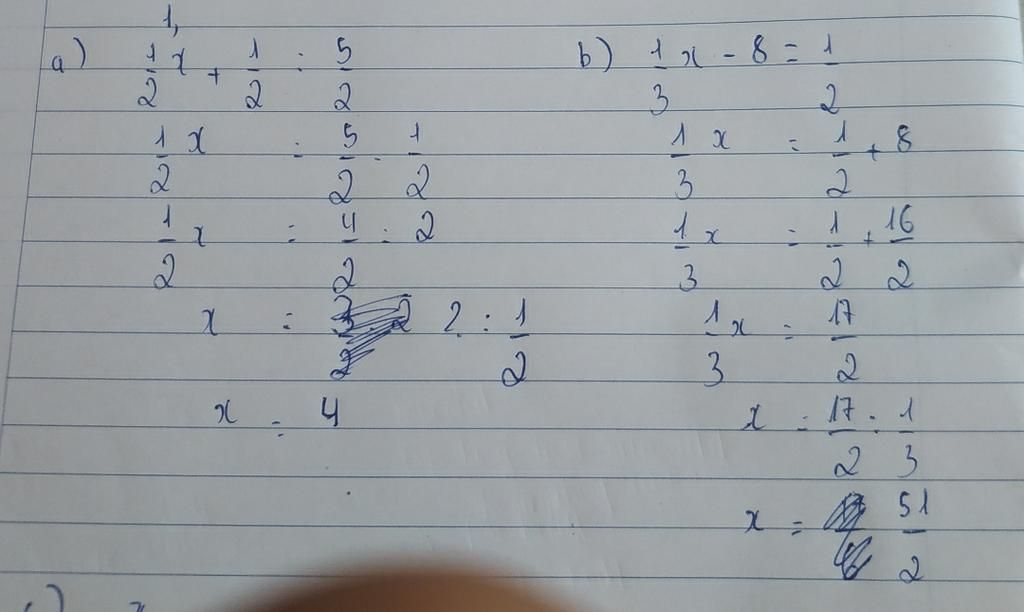 1,
a) 1/2 x + 1/2 = 5/2
1/2 x = 5/2 - 1/2
1/2 x = 4/2 = 2
x = 2 : 1/2
x = 4
b) 1/3 x - 8 = 1/2
1/3 x = 1/2 + 8
1/3 x = 1/2 + 16/2
1/3 x = 17/2
x = 17/2 : 1/3
x = 51/2